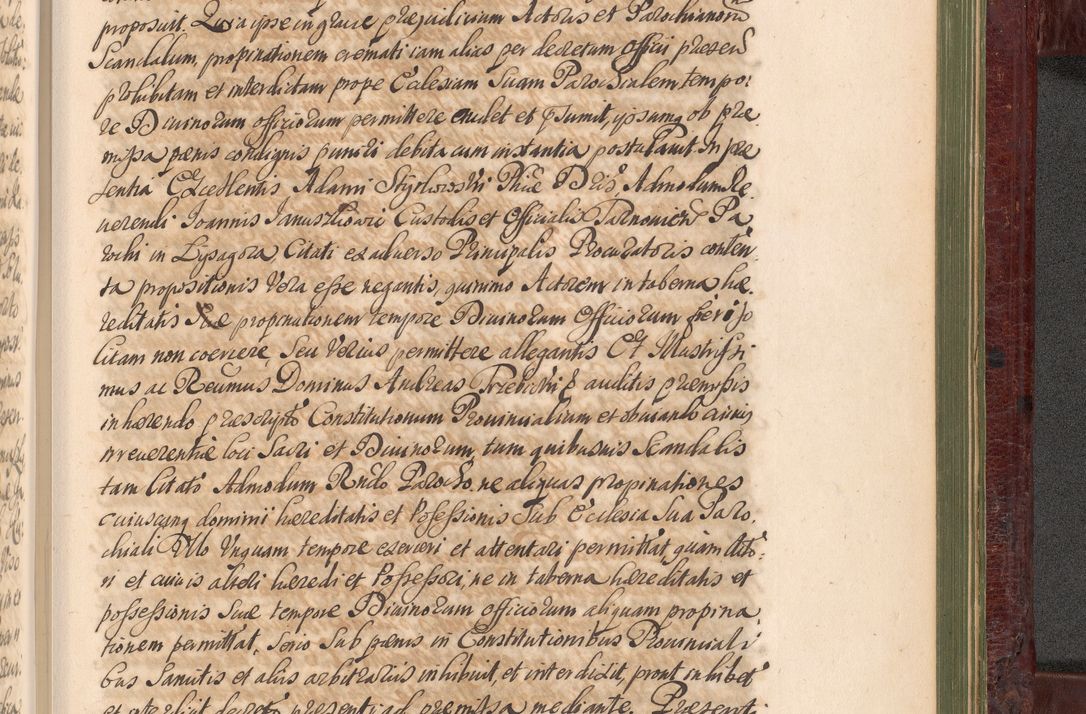 proposuit. Quia ipse in graue præjudicium Actoris et Parochianorũ
Scandalum, propinationem cremati iam alias per decretum Officii præsen̄
prohibitam et interdictam prope Ecclesiam Suam Parochialem tempo:
re Diuinorum officiorum permittere audet et p̃sumit, ipsumq ob præ
missa pænis condignis puniri debita cum instantia postulauit. In præ
sentia Excellentis Adami Styrkowski Phiæ Dris Admodum Re
uerendi Joannis Januszkowic Custodis et Officialis Tarnouien̄ Pa
rochi in Lysagora, Citati ex aduerso Principalis Procuratoris conten
ta propositionis Vera esse negantis, quinimo Actorem in taberna hæ
reditatis Suæ propinationem tempore Diuinorum Officiorum fieri so
litam non coercere, Seu Verius permittere allegantis. Et Illustrissi
mus ac Reũmus Dominus Andreas Trzebicki E auditis præmissis
inhærendo præscripto Constitutionum Prouincialium et obuiando
irreuerentiæ loci Sacri et Diuinorum, tum quibusuis Scandalis
tam Citato Admodum Rndo Parocho, ne aliquas propinationes
cuiuscunq dominii hæreditatis et Possessionis Sub Ecclesia Sua Paro,
chiali Vllo Vnquam tempore exerceri et attentari permittat, quam Acto:
ri et cuiuis alteri hæredi et Possessori, ne in taberna hæreditatis et
possessionis Suæ tempore Diuinorum officiorum aliquam propina
tionem permittat, Serio Sub pænis in Constitutionibus Prouinciali
bus Sancitis et aliis arbitrariis inhibuit, et interdixit, prout inhibet
et interdicit decreto præsenti ad præmissa mediante. Præsenti